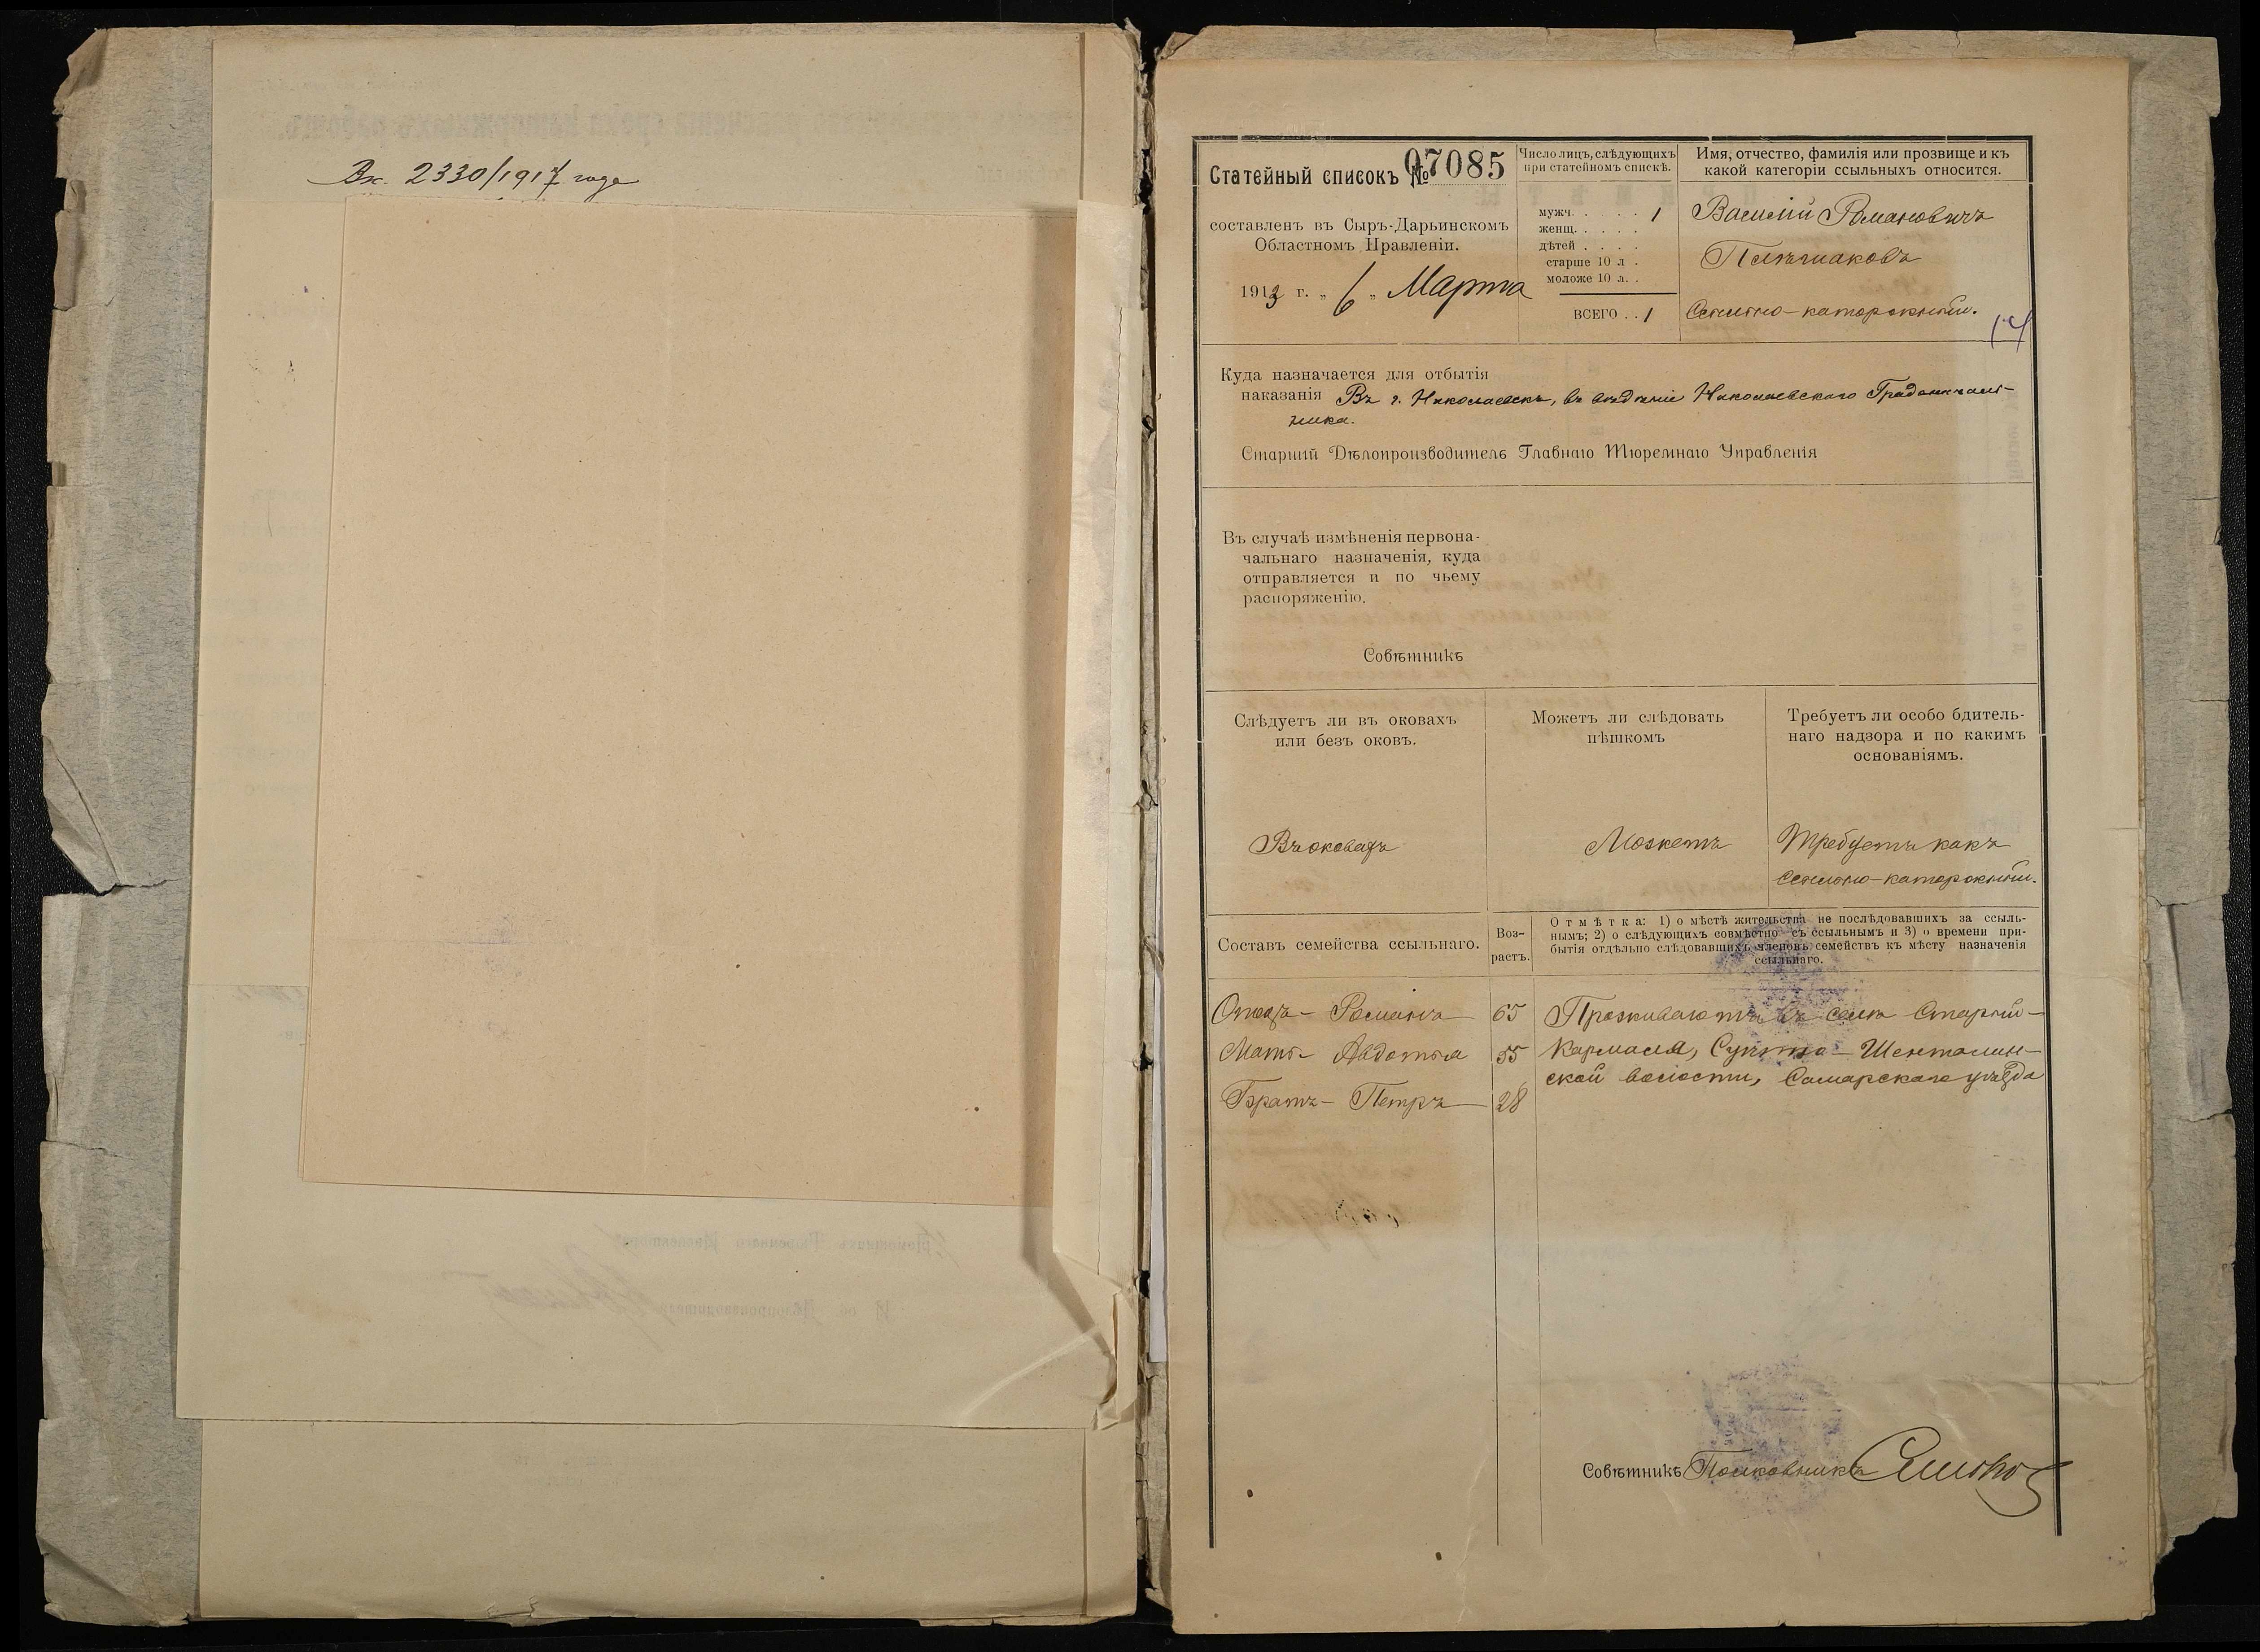 Вх. 2330/1917 года
Статейный списокъ № 07085
составленъ въ Сыръ-Дарьинскомъ
Областномъ Правленіи.
1913 г. „ 6 „ Марта
Число лицъ, слѣдующихъ
при статейномъ спискѣ.
мужч. . . . . 1
женщ. . . . .
дѣтей . . . .
старше 10 л .
моложе 10 л. .
ВСЕГО . . 1
Имя, отчество, фамилія или прозвище и къ
какой категоріи ссыльныхъ относится.
Василій Романовичъ
Ссыльно-каторжный.
Куда назначается для отбытія
наказанія Въ г. Николаевскъ, въ вѣдѣніе Николаевскаго Градоначаль-
ника.
Старшій Дѣлопроизводитель Главнаго Тюремнаго Управленія
Въ случаѣ измѣненія первона-
чальнаго назначенія, куда
отправляется и по чьему
распоряженію.
Совѣтникъ
Слѣдуетъ ли въ оковахъ
или безъ оковъ.
Въ оковахъ
Можетъ ли слѣдовать
пѣшкомъ
Можетъ
Требуетъ ли особо бдитель-
наго надзора и по какимъ
основаніямъ.
Требуетъ какъ
ссыльно-каторжный.
Составъ семейства ссыльнаго.
Воз-
растъ.
Отмѣтка: 1) о мѣстѣ жительства не послѣдовавшихъ за ссыль-
нымъ; 2) о слѣдующихъ совмѣстно съ ссыльнымъ и 3) о времени при-
бытія отдѣльно слѣдовавшихъ членовъ семействъ къ мѣсту назначенія
ссыльнаго.
Отецъ – Романъ 65
Мать – Авдотья 55
Братъ – Петръ 28
Проживаютъ въ селѣ Старый-
Кармала, Шенталин-
ской волости, Самарскаго уѣзда
Совѣтникъ Полковникъ